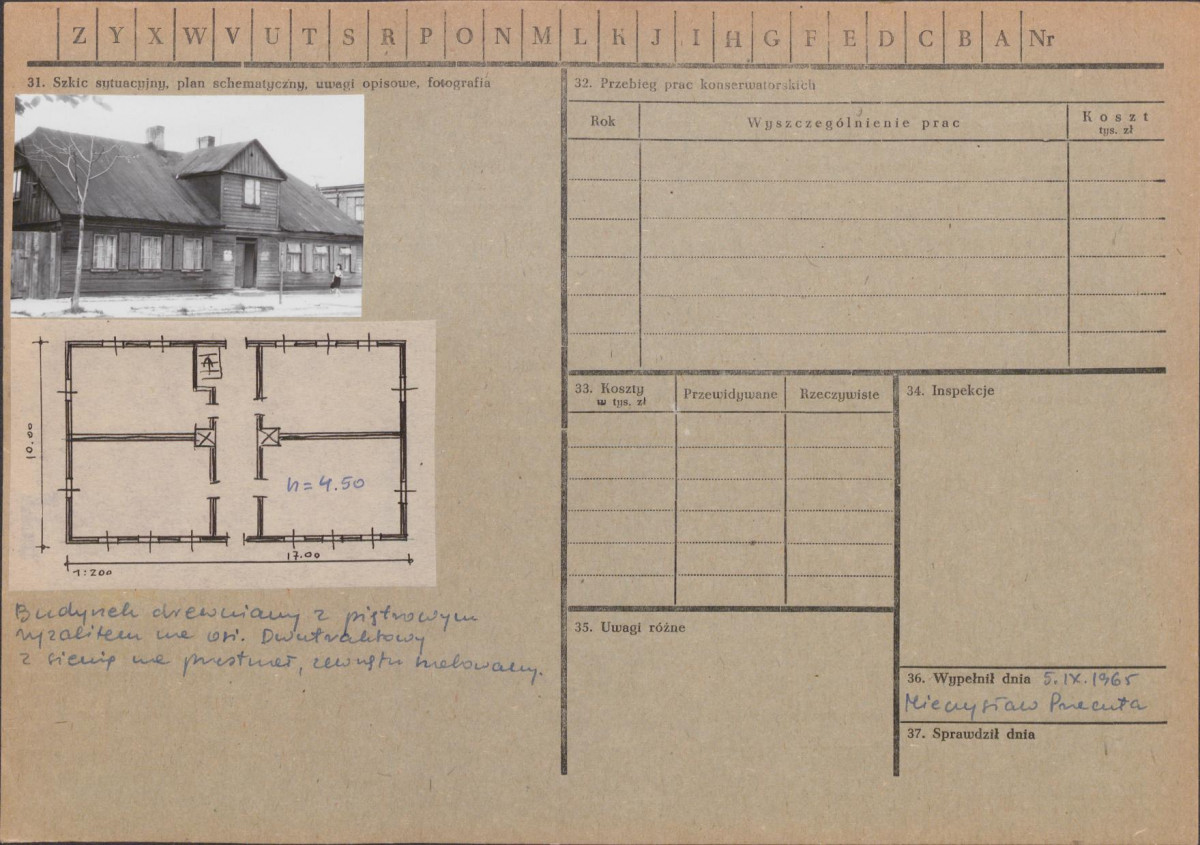 Z Y X W V U T S R P O N M L K J I H G F E D C B A Nr
31. Szkic sytuacyjny, plan schematyczny, uwagi opisowe, fotografia
10.00
h = 4.50
17.00
1:200
Budynek drewniany z piętrowym
ryzalitem na osi. Dwutraktowy
z sienią na przestrzał, zewnątrz malowany.
32. Przebieg prac konserwatorskich
Rok
Wyszczególnienie prac
Koszt
tys. zł
33. Koszty
w tys. zł
Przewidywane
Rzeczywiste
34. Inspekcje
35. Uwagi różne
36. Wypełnił dnia 5.IX.1965
Mieczysław Przecuta
37. Sprawdził dnia